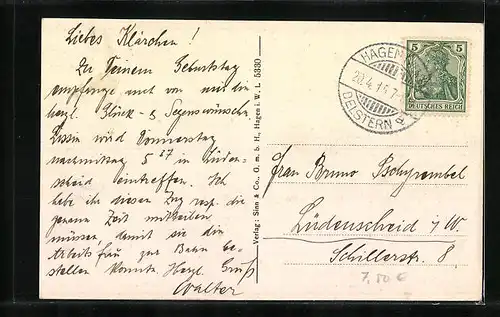 Liebes Klärchen!
Zu Deinem Geburtstag
empfange auch von mir die
herzl. Glück- & Segenswünsche.
wird Donnerstag
nachmittag 5 27 in Lüden-
scheid eintreffen. Ich
habe ihr diesen Zug resp. die
genaue Zeit mitteilen
müssen, damit sie die
Arbeitsfrau zur Bahn be-
stellen konnte. Herzl. Gruß
Walter
Verlag: Sinn & Co., G. m. b. H., Hagen i. W. L. 5330
HAGEN
14.7-
DELSTERN
5 5
DEUTSCHES REICH
Frau Bruno Tschyrembel
Lüdenscheid i/W.
Schillerstr. 8
7,50 €